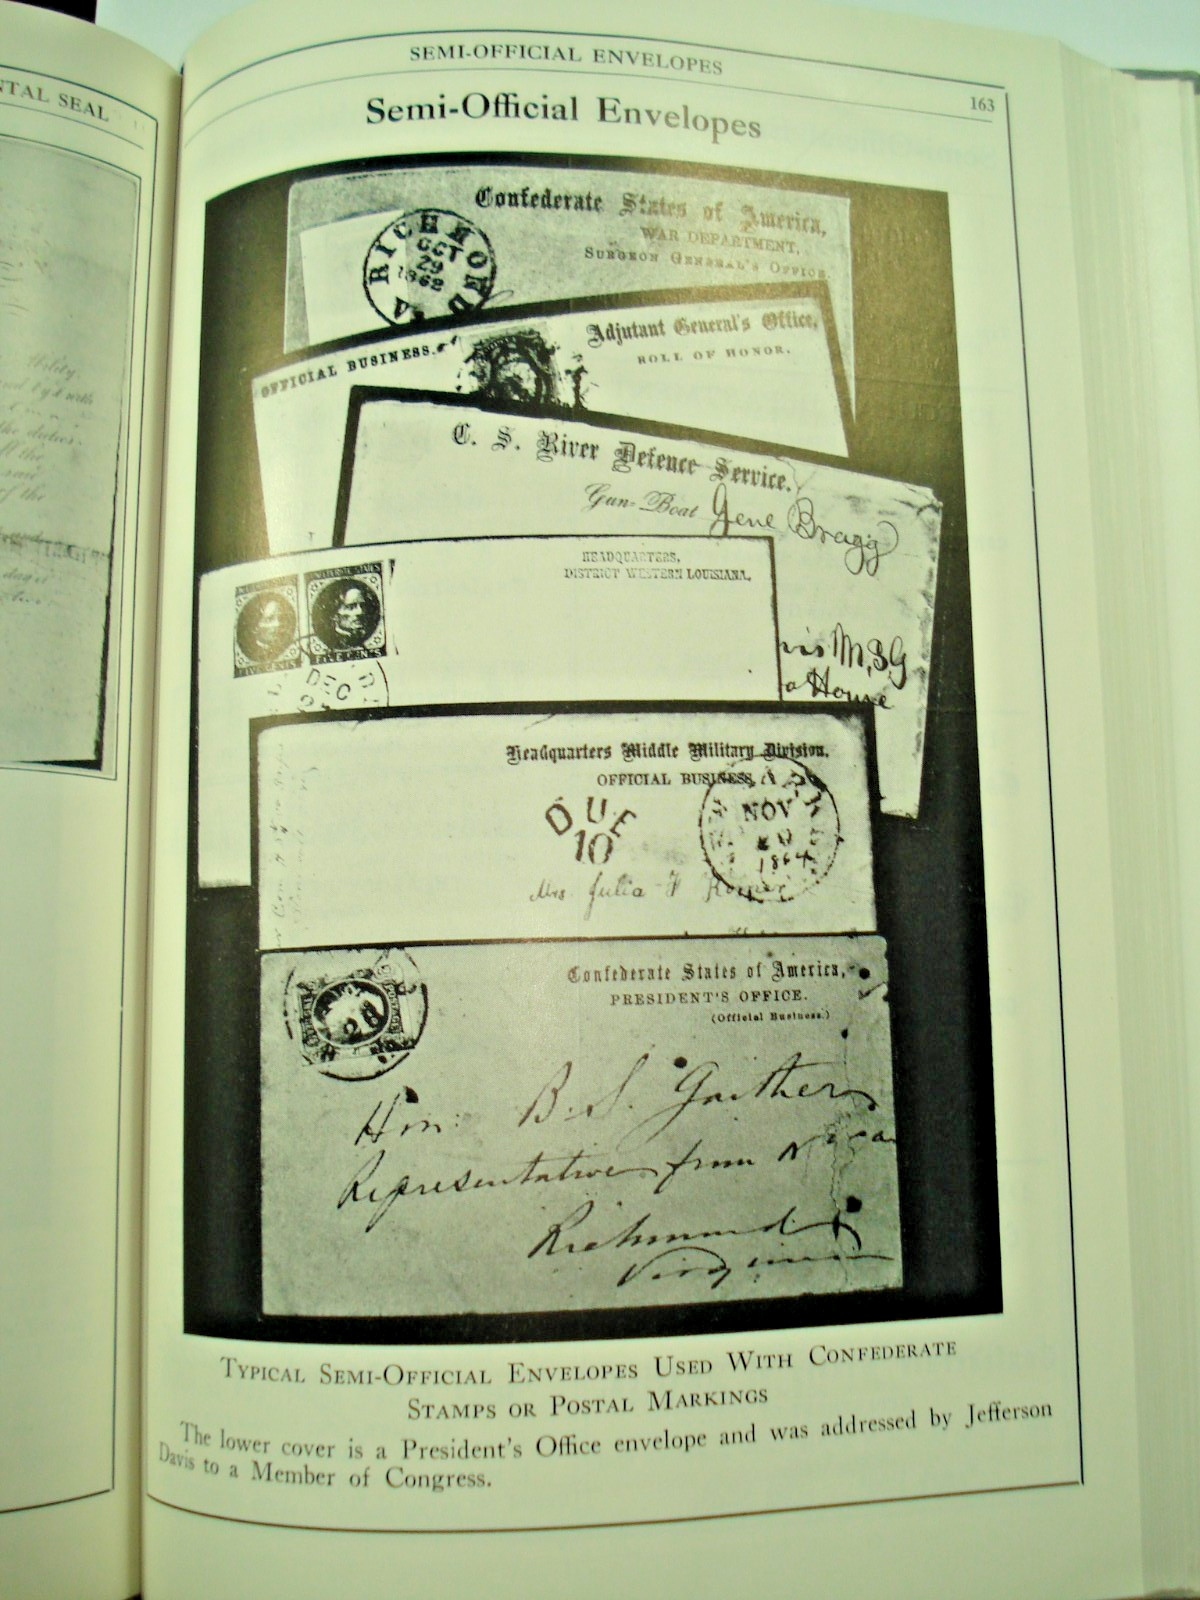 NTAL SEAL
SEMI-OFFICIAL ENVELOPES
163
Semi-Official Envelopes
Confederate States of America,
WAR DEPARTMENT,
SURGEON GENERAL'S OFFICE.
RICHMOND
OCT
29
1862
VA
OFFICIAL BUSINESS.
Adjutant General's Office,
ROLL OF HONOR.
C. S. River Defence Service.
Gun-Boat Gene Bragg
HEADQUARTERS,
DISTRICT WESTERN LOUISIANA.
FIVE CENTS
FIVE CENTS
DEC
Headquarters Middle Military Division.
OFFICIAL BUSINESS.
DUE
10
NOV
1864
Mrs Julia
Confederate States of America,
PRESIDENT'S OFFICE.
(Official Business.)
28
Hon: B. S. Gaither
Representative from N
Richmond
Virginia
TYPICAL SEMI-OFFICIAL ENVELOPES USED WITH CONFEDERATE
STAMPS OR POSTAL MARKINGS
The lower cover is a President's Office envelope and was addressed by Jefferson
Davis to a Member of Congress.